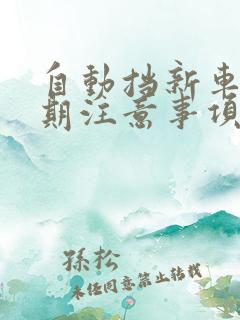 自動挡新車
期注意事項
孫松
未経同意禁止转載